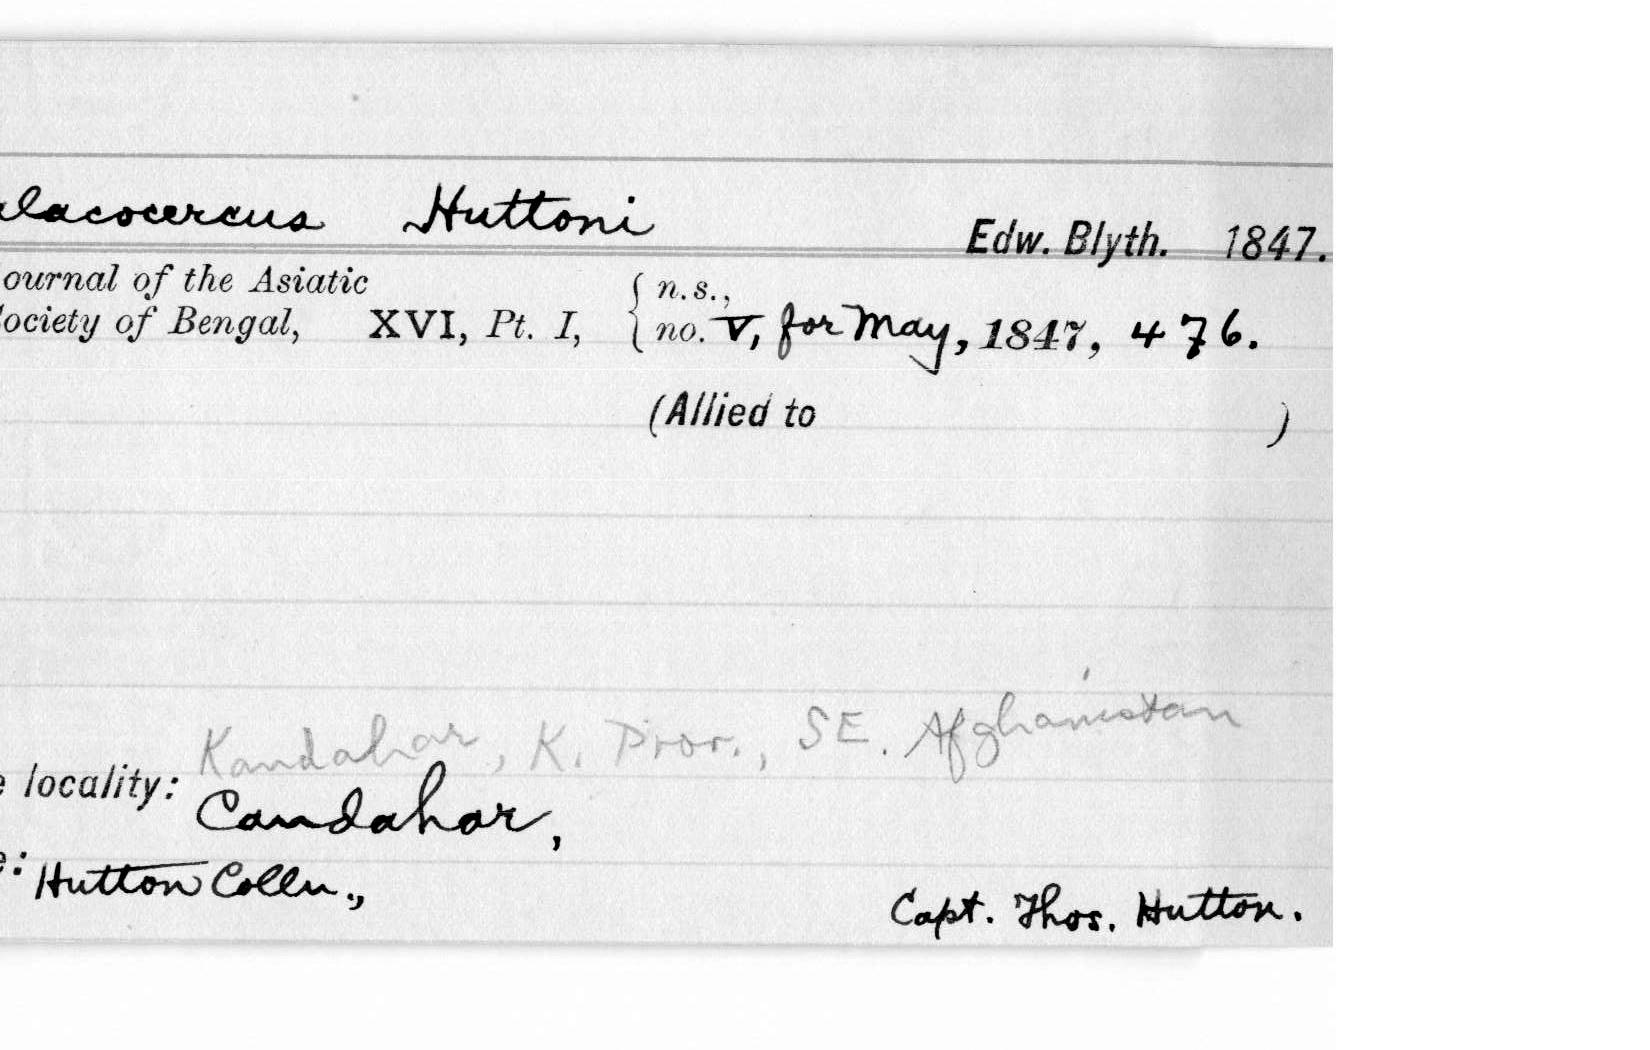 alacocercus Huttoni
Edw. Blyth. 1847.
ournal of the Asiatic
ociety of Bengal, XVI, Pt. I, { n.s.,
no. V, for May, 1847, 476.
(Allied to )
Kandahar, K. Prov., SE. Afghanistan
e locality: Candahar,
e: Hutton Colln., Capt. Thos. Hutton.